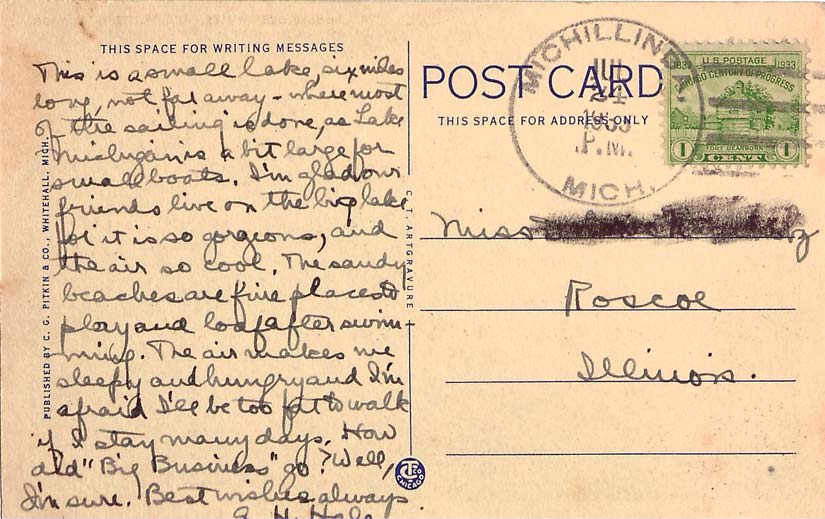 THIS SPACE FOR WRITING MESSAGES
This is a small lake, six miles
long, not far away – where most
of the sailing is done, as Lake
Michigan is a bit large for
small boats. I'm glad our
friends live on the big lake
for it is so gorgeous, and
the air so cool. The sandy
beaches are fine places to
play and loaf after swim-
ming. The air makes me
sleepy and hungry and I'm
afraid I'll be too fat to walk
if I stay many days. How
did "Big Business" go? Well,
I'm sure. Best wishes always
H. Hale
PUBLISHED BY C. G. PITKIN & CO., WHITEHALL, MICH.
C. T. ARTGRAVURE
CHICAGO
POST CARD
THIS SPACE FOR ADDRESS ONLY
MICHILLINDA,
JUL
1933
P.M.
MICH.
1833 U.S. POSTAGE 1933
CHICAGO CENTURY OF PROGRESS
FORT DEARBORN
1 CENT 1
Miss
Roscoe
Illinois.